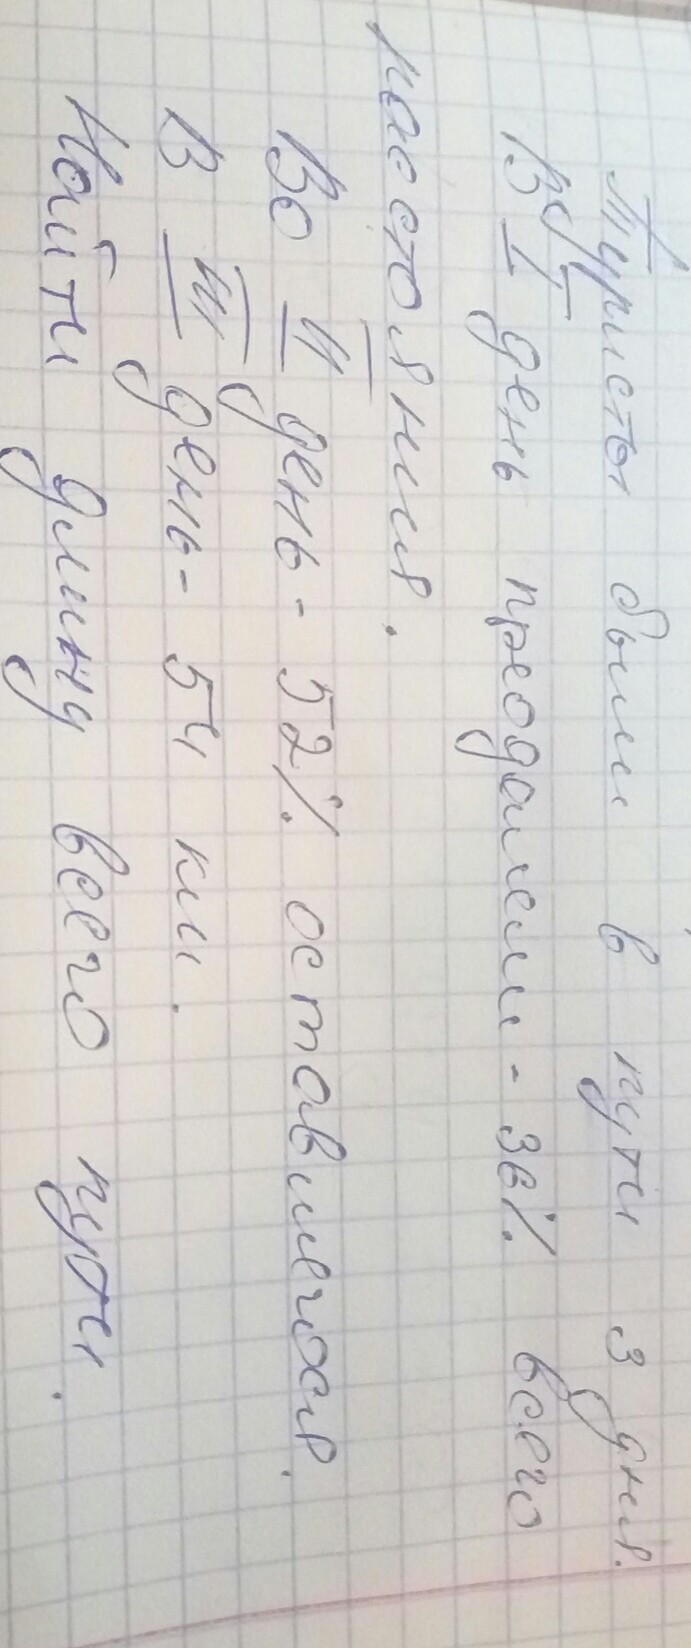 Туристы были в пути 3 дня.
В I день преодолели - 36% всего
расстояния.
Во II день - 52% оставшегося.
В III день - 54 км.
Найти длину всего пути.